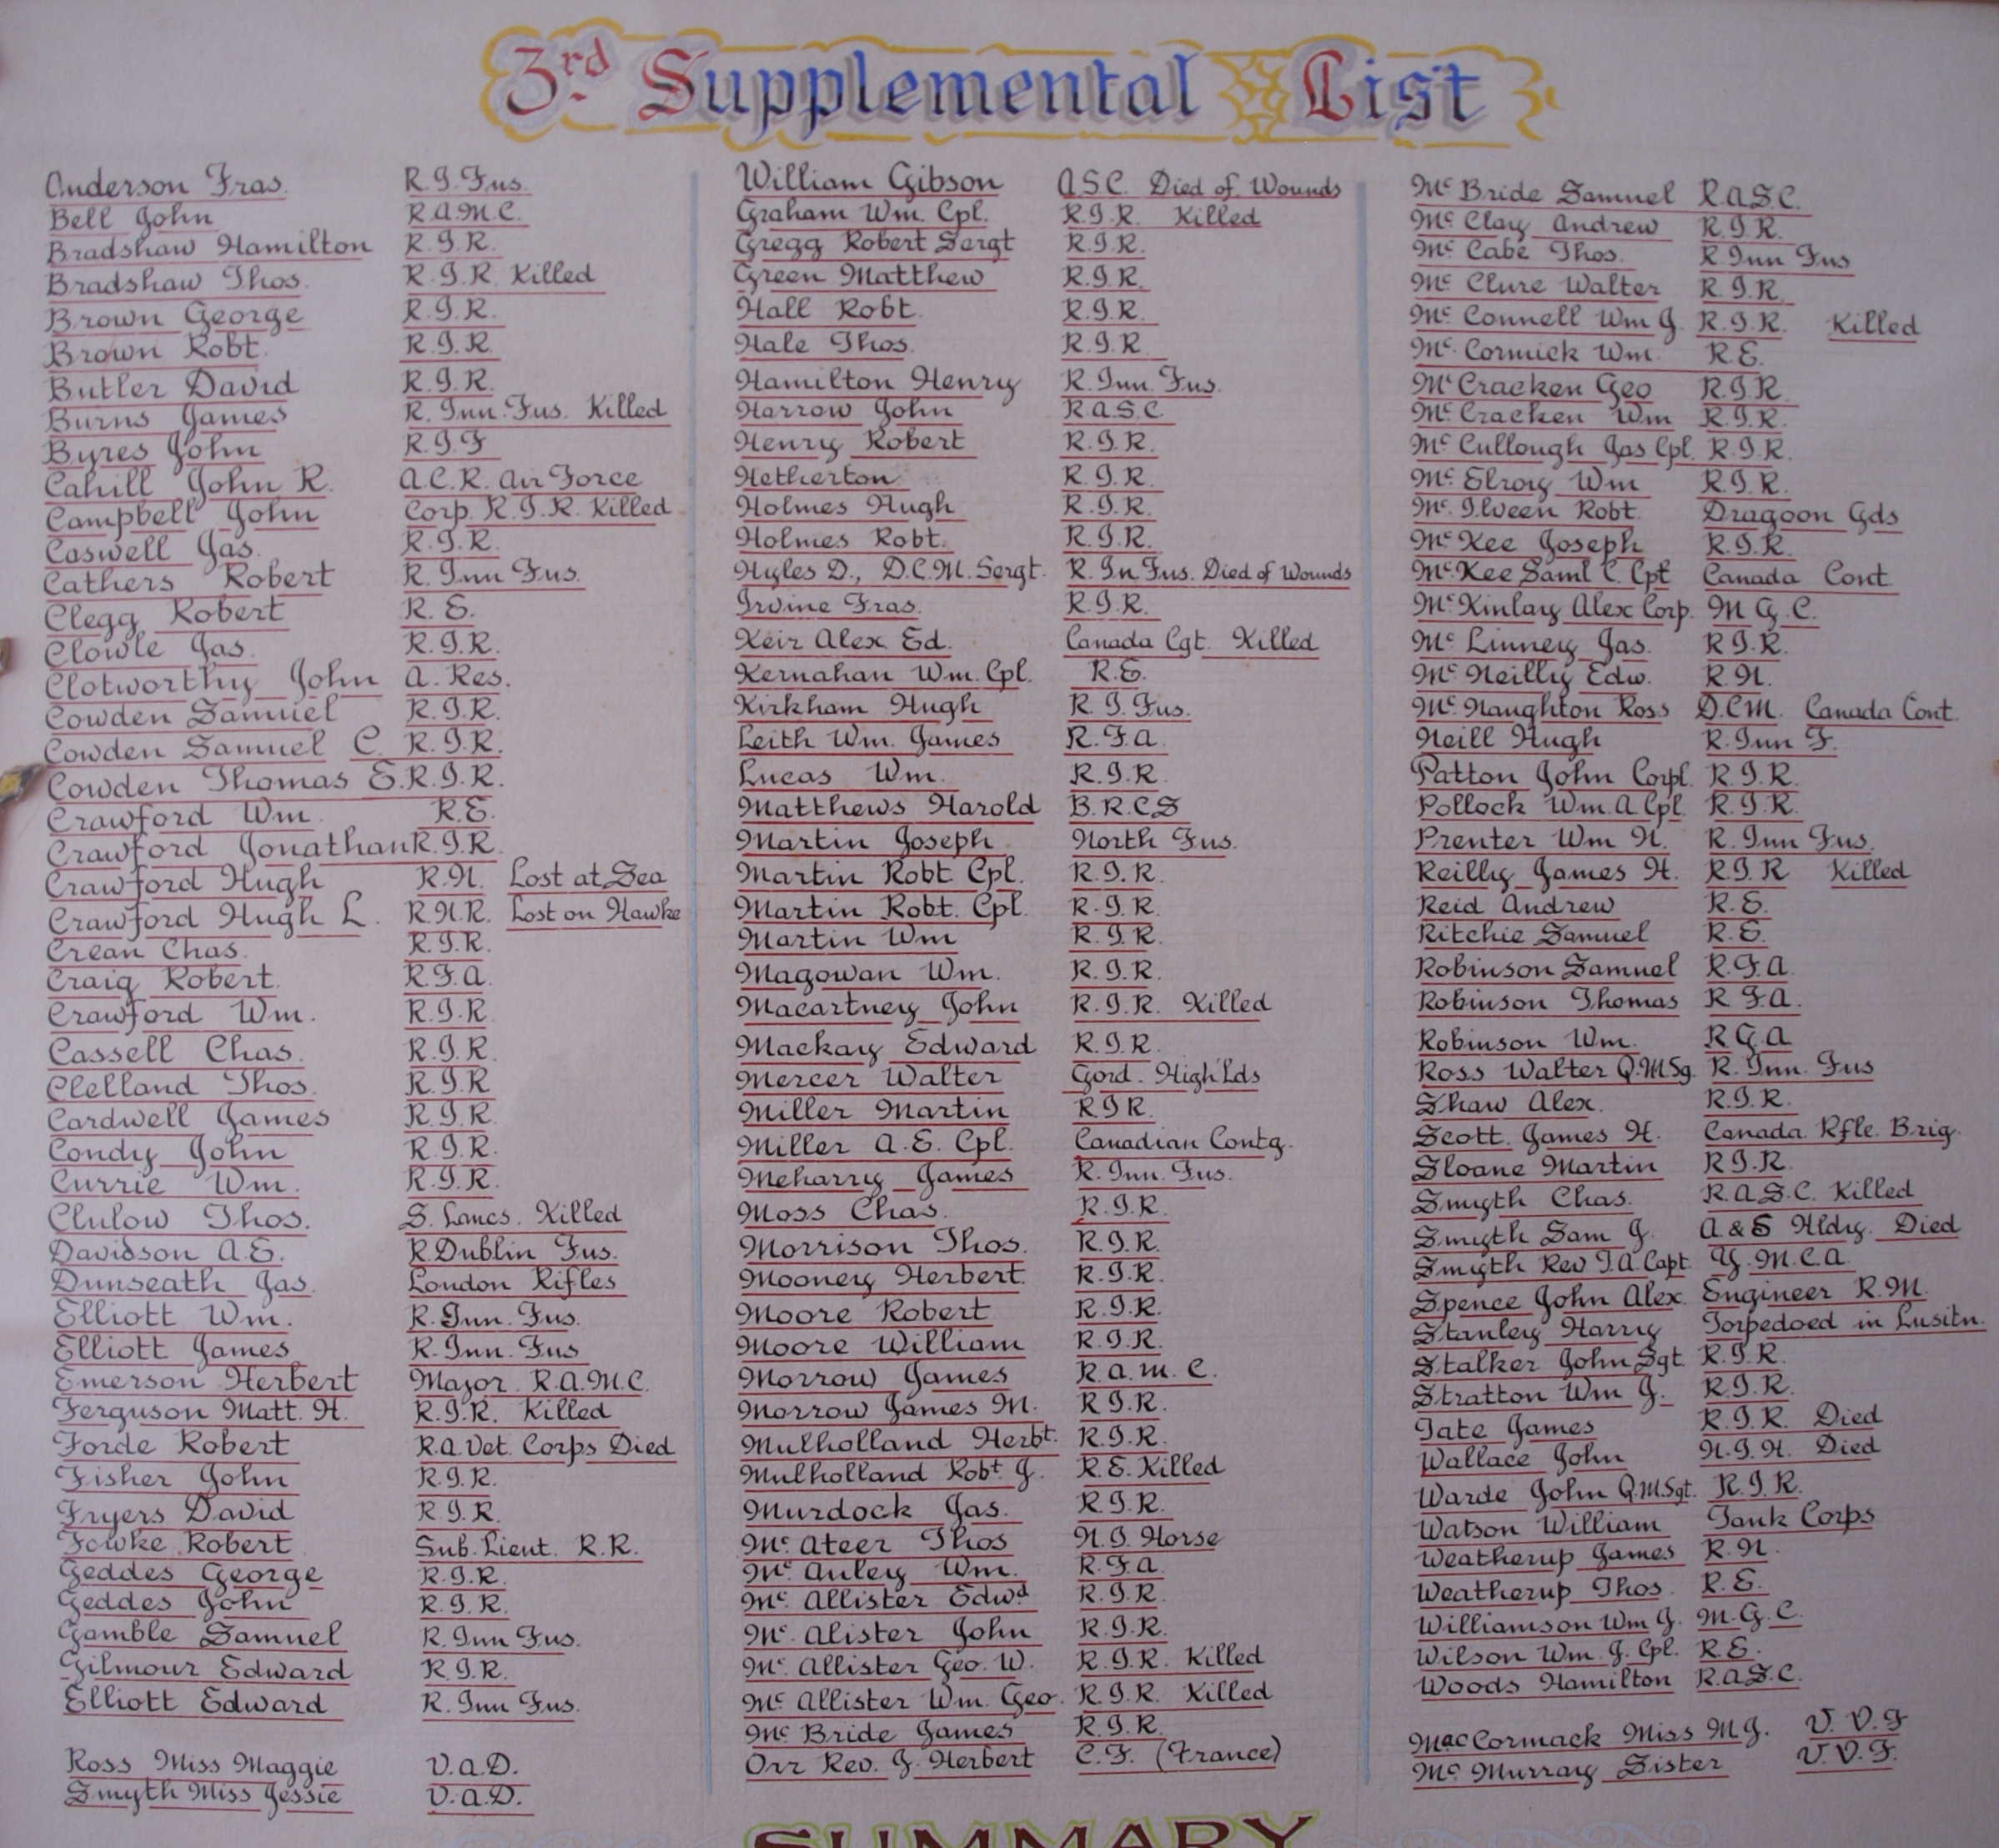 3rd Supplemental List
Anderson Fras. R.I.Fus.
Bell John R.A.M.C.
Bradshaw Hamilton R.I.R.
Bradshaw Thos. R.I.R. Killed
Brown George R.I.R.
Brown Robt. R.I.R.
Butler David R.I.R.
Burns James R. Inn. Fus. Killed
Byres John R.I.F
Cahill John R. A.C.R. Air Force
Campbell John Corp. R.I.R. Killed
Caswell Jas. R.I.R.
Cathers Robert R. Inn Fus.
Clegg Robert R.E.
Clowle Jas. R.I.R.
Clotworthy John A. Res.
Cowden Samuel R.I.R.
Cowden Samuel C. R.I.R.
Cowden Thomas E. R.I.R.
Crawford Wm. R.E.
Crawford Jonathan R.I.R.
Crawford Hugh R.N. Lost at Sea
Crawford Hugh L. R.N.R. Lost on Hawke
Crean Chas. R.I.R.
Craig Robert. R.F.A.
Crawford Wm. R.I.R
Cassell Chas. R.I.R.
Clelland Thos. R.I.R
Cardwell James R.I.R.
Condy John R.I.R.
Currie Wm. R.I.R.
Clulow Thos. S. Lancs. Killed
Davidson A.E. R.Dublin Fus.
Dunseath Jas. London Rifles
Elliott Wm. R. Inn. Fus.
Elliott James R. Inn. Fus
Emerson Herbert Major R.A.M.C.
Ferguson Matt. H. R.I.R. Killed
Forde Robert R.A.Vet. Corps Died
Fisher John R.I.R.
Fryers David R.I.R.
Fowke Robert Sub. Lieut. R.R.
Geddes George R.I.R.
Geddes John R.I.R.
Gamble Samuel R. Inn Fus.
Gilmour Edward R.I.R.
Elliott Edward R. Inn Fus.
Ross Miss Maggie V.A.D.
Smyth Miss Jessie V.A.D.
William Gibson A.S.C. Died of Wounds
Graham Wm. Cpl. R.I.R. Killed
Gregg Robert Sergt R.I.R.
Green Matthew R.I.R.
Hall Robt. R.I.R.
Hale Thos. R.I.R.
Hamilton Henry R. Inn. Fus.
Harrow John R.A.S.C.
Henry Robert R.I.R.
Hetherton R.I.R.
Holmes Hugh R.I.R.
Holmes Robt. R.I.R.
Hyles D., D.C.M. Sergt. R. In Fus. Died of Wounds
Irvine Fras. R.I.R.
Keir Alex Ed. Canada Cgt. Killed
Kernahan Wm. Cpl. R.E.
Kirkham Hugh R.I.Fus.
Leith Wm. James R.F.A.
Lucas Wm. R.I.R.
Matthews Harold B.R.C.S
Martin Joseph North Fus.
Martin Robt Cpl. R.I.R.
Martin Robt. Cpl. R.I.R.
Martin Wm R.I.R.
Magowan Wm. R.I.R.
Macartney John R.I.R. Killed
Mackay Edward R.I.R.
Mercer Walter Gord. High'lds
Miller Martin R.I.R.
Miller A.E. Cpl. Canadian Contg.
Meharry James R. Inn. Fus.
Moss Chas. R.I.R.
Morrison Thos. R.I.R.
Mooney Herbert. R.I.R.
Moore Robert R.I.R.
Moore William R.I.R.
Morrow James R.A.M.C.
Morrow James M. R.I.R.
Mulholland Herbt. R.I.R.
Mulholland Robt J. R.E. Killed
Murdock Jas. R.I.R.
Mc. Ateer Thos N.I. Horse
Mc. Auley Wm. R.F.A.
Mc. Allister Edwd R.I.R.
Mc. Alister John R.I.R.
Mc. Allister Geo. W. R.I.R. Killed
Mc Allister Wm. Geo. R.I.R. Killed
Mc Bride James R.I.R.
Orr Rev. J. Herbert C.F. (France)
Mc Bride Samuel R.A.S.C.
Mc Clay Andrew R.I.R.
Mc Cabe Thos. R Inn Fus
Mc Clure Walter R.I.R.
Mc Connell Wm J. R.I.R. Killed
Mc. Cormick Wm. R.E.
Mc Cracken Geo R.I.R.
Mc Cracken Wm R.I.R.
Mc Cullough Jas Cpl. R.I.R.
Mc Elroy Wm R.I.R.
Mc. Ilveen Robt. Dragoon Gds
Mc Kee Joseph R.I.R.
Mc. Kee Saml C. Cpt Canada Cont
Mc Kinlay Alex Corp. M.G.C.
Mc Linney Jas. R.I.R.
Mc Neilly Edw. R.N.
Mc. Naughton Ross D.C.M. Canada Cont.
Neill Hugh R. Inn F.
Patton John Corpl. R.I.R.
Pollock Wm. A Cpl. R.I.R.
Prenter Wm H. R. Inn Fus.
Reilly James H. R.I.R Killed
Reid Andrew R.E.
Ritchie Samuel R.E.
Robinson Samuel R.F.A.
Robinson Thomas R.F.A.
Robinson Wm. R.G.A
Ross Walter Q.M.Sg. R. Inn. Fus
Shaw Alex. R.I.R.
Scott. James H. Canada. Rfle. Brig.
Sloane Martin R.I.R.
Smyth Chas. R.A.S.C. Killed
Smyth Sam J. A & S Hldy. Died
Smyth Rev T.A. Capt. Y.M.C.A.
Spence John Alex. Engineer R.M.
Stanley Harry Torpedoed in Lusitn.
Stalker John Sgt. R.I.R.
Stratton Wm J. R.I.R.
Tate James R.I.R. Died
Wallace John N.I.H. Died
Warde John Q.M.Sgt. R.I.R.
Watson William Tank Corps
Weatherup James R.N.
Weatherup Thos. R.E.
Williamson Wm J. M.G.C.
Wilson Wm. J. Cpl. R.E.
Woods Hamilton R.A.S.C.
MacCormack Miss M.J. U.V.F
Mc. Murray Sister U.V.F.
SUMMARY